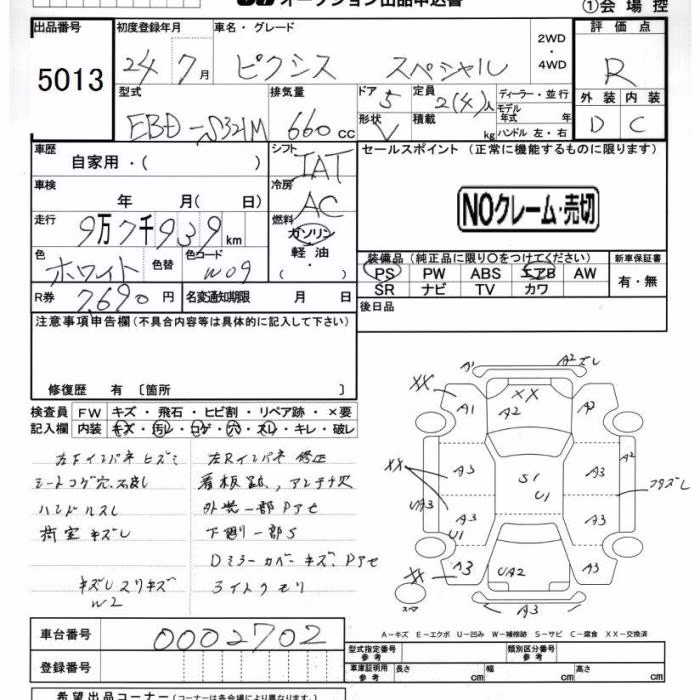 オークション出品申込書
①会場控
出品番号 初度登録年月 車名・グレード 2WD・4WD 評価点
5013 24年7月 ピクシス スペシャル R
型式 排気量 ドア 5 定員 2(4)人 ディーラー・並行 外装 内装
EBD-S321M 660cc 形状 V 積載 kg モデル年式 年 ハンドル 左・右 D C
車歴 シフト セールスポイント (正常に機能するものに限ります)
自家用・( ) IAT
車検 冷房
年 月( 日) AC NOクレーム・売切
走行 燃料
9万7千939km ガソリン
色 色替 色コード 軽油 装備品 (純正品に限り○をつけてください) 新車保証書
ホワイト W09 ・( ) PS PW ABS エアB AW 有・無
R券 7,690円 名変通知期限 月 日 SR ナビ TV カワ
後日品
注意事項申告欄 (不具合内容等は具体的に記入して下さい)
修復歴 有 〔箇所 〕
検査員 FW キズ・飛石・ヒビ割・リペア跡・×要
記入欄 内装 キズ・汚レ・コゲ・穴・スレ・キレ・破レ
左Fインパネ ヒズミ 左Rインパネ 修正
シートコゲ穴、汚レ 看板跡、アンテナ穴
ハンドルスレ 外装一部Pアセ
荷室 キズレ 下廻一部S
Dミラーカバーキズ、Pアセ
キズレスリキズ ライトクモリ
W2
カ A2ズレ
XX XX
A1 A2 A2
A2
XX A3 S1 A3
U1 フタズレ
UA3 A3 A3
U1
XX A3 UA2 A3
スペア A3
A-キズ E-エクボ U-凹み W-補修跡 S-サビ C-腐食 XX-交換済
車台番号 0002702 型式指定番号 参考 類別区分番号 参考
登録番号 車庫証明用 参考 長さ cm 幅 cm 高さ cm
希望出品コーナー (コーナーは各会場により異なります)